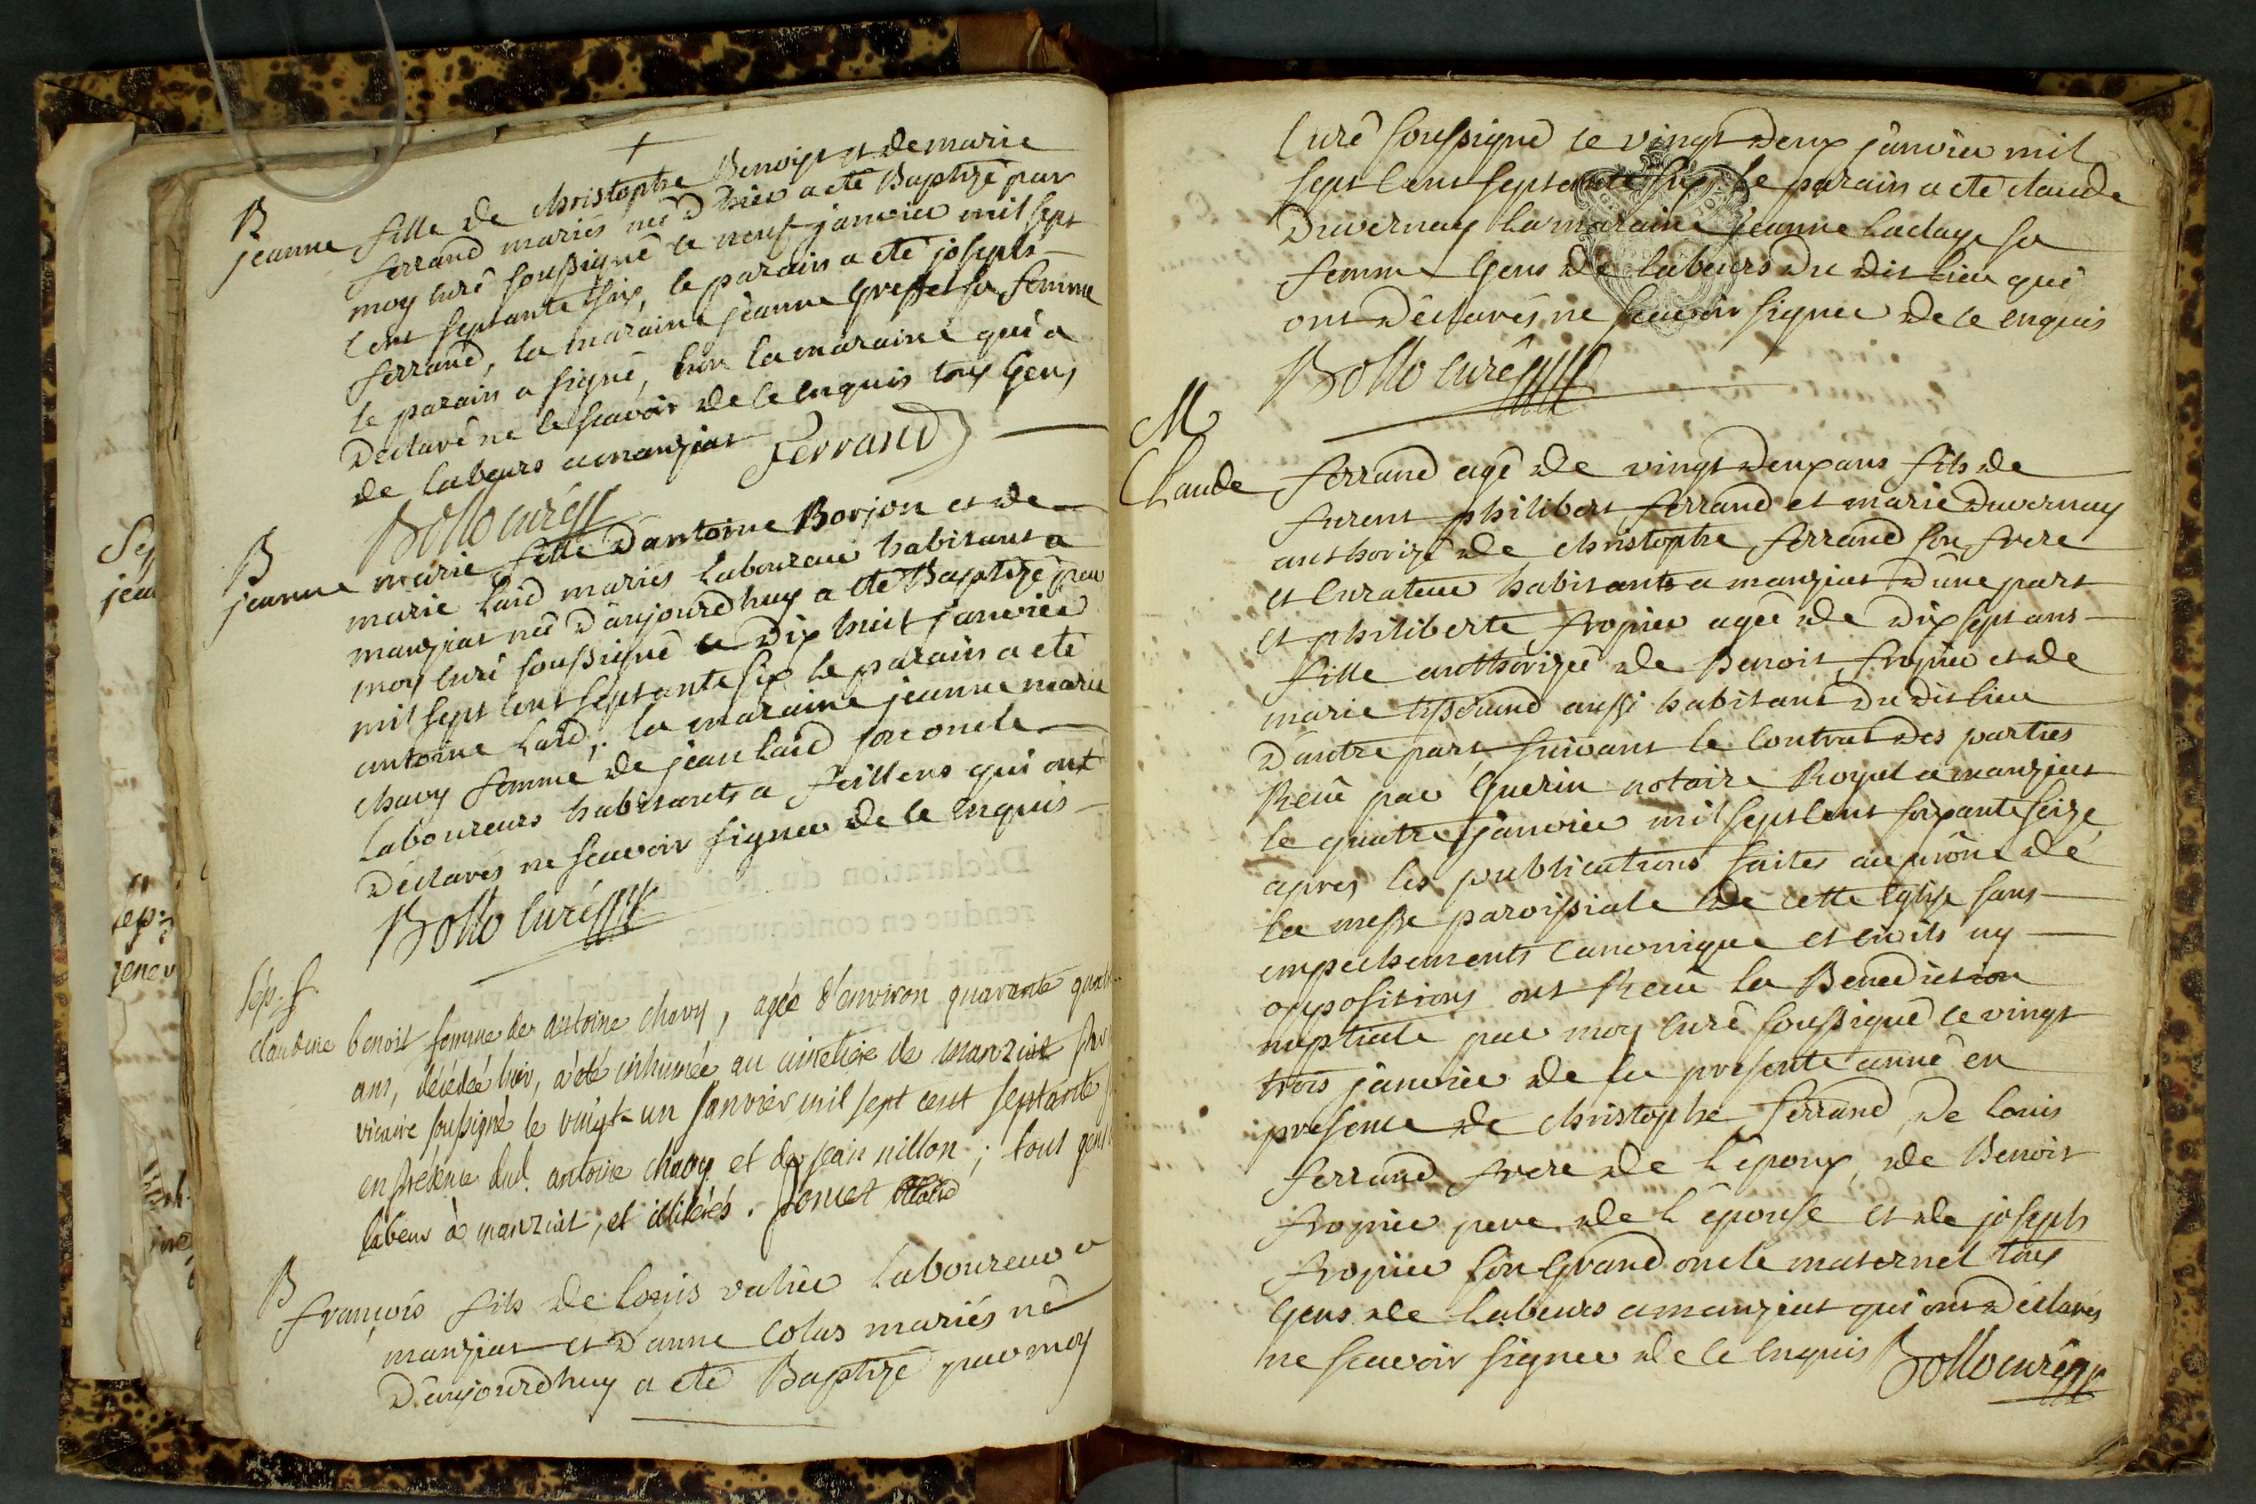 +
B
jeanne fille de christophe Benoist et de marie
ferrand mariés née d'hier a eté Baptizé par
moy curé soussigné ce neuf janvier mil sept
cent septante six, le parain a eté joseph
ferrand, la maraine jeanne Gresset sa femme
le parain a signé, non la maraine qui a
declaré ne le scavoir de ce enquis tous gens
de labeurs a manziat Ferrand
Bollo curé
B
jeanne marie fille d'antoine Borjon et de
marie Laid mariés laboureur habitant a
manziat née d'aujourdhuy a eté Baptizé par
moy curé soussigné ce dix huit janvier
mil sept cent septante six le parain a eté
antoine Laid; la maraine jeanne marie
chavy femme de jean Laid son oncle
Laboureurs habitants a feillens qui ont
déclarés ne scavoir signer de ce enquis
Bollo curé
Sép. f.
claudine benoit femme de antoine chavy, agée d'environ quarante quatre
ans, décédée hier, a été inhumée au cimetiere de manziat par
vicaire soussigné le vingt un janvier mil sept cent septante
en présence dud. antoine chavy et de jean nillon; tous gens
labeur à manziat, et illiterés.
B
françois fils de loyis valier laboureur a
manziat et d'anne Colas mariés né
d'aujourdhuy a eté Baptizé par moy
Curé soussigné ce vingt deux janvier mil
sept cent septante six le parain a eté claude
Duvernay la maraine jeanne Laclaye sa
femme Gens de labeurs du dit lieu qui
ont déclarés ne scavoir signer de ce enquis
Bollo curé
M
Claude ferrand agé de vingt deux ans fils de
furent philibert ferrand et marie Duvernay
authorizé de christophe ferrand son frere
et curateur habitants a manziat d'une part
et philiberte fropier agée de dix sept ans
fille authorizée de Benoit fropier et de
marie aussi habitant du dit lieu
d'autre part, suivant le contrat des parties
Receu par Guerin notaire Royal a manziat
le quatre janvier mil sept cent soixante seize
apres les publications faites au prône de
la messe paroissiale de cette Eglise sans
empechements canonique et civils ny
oppositions ont Receu la Benediction
nuptiale par moy curé soussigné ce vingt
trois janvier de la presente année en
presence de christophe ferrand, de Louis
ferrand frere de l'époux, de Benoit
fropier pere de l'épouse et de joseph
fropier son grand oncle maternel tous
Gens de labeurs a manziat qui ont déclarés
ne scavoir signer de ce enquis Bollo curé